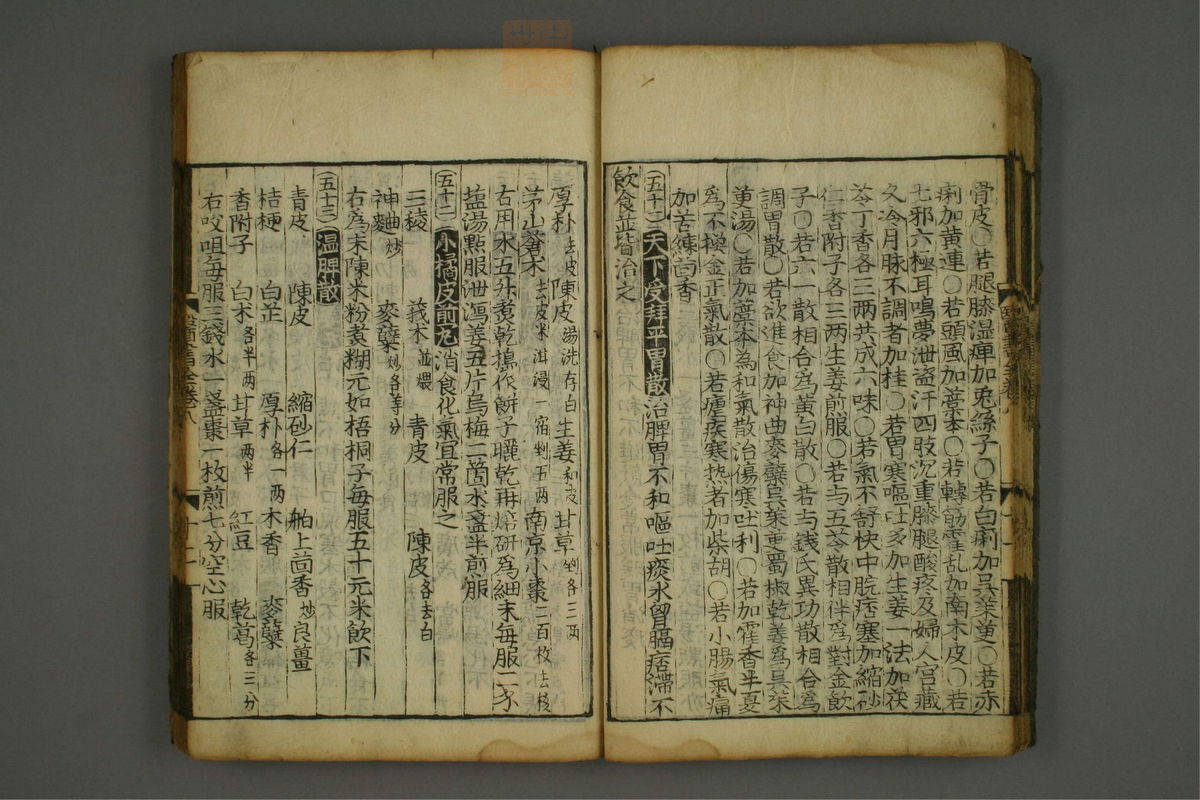 骨皮〇若腿膝湿痺加兎絲子〇若白痢加吳茱萸〇若赤
痢加黄連〇若頭風加藁本〇若轉筋霍乱加南木皮〇若
七邪六極耳鳴夢泄盗汗四肢沉重膝腿酸疼及婦人宫藏
久冷月脉不調者加桂〇若胃寒嘔吐多加生姜一法加茯
苓丁香各三兩共成六味〇若氣不舒快中脘痞塞加縮砂
仁香附子各三两生姜煎服〇若与五苓散相伴爲對金飲
子〇若六一散相合爲黄白散〇若与錢氏異功散相合爲
調胃散〇若欲進食加神曲麥蘗吳茱萸蜀椒乾姜爲吳茱
萸湯〇若加藁本為和氣散治傷寒吐利〇若加霍香半夏
爲不換金正氣散〇若瘧疾寒热者加柴胡〇若小腸氣痛
加苦練茴香
(五十二)天下受拜平胃散治脾胃不和嘔吐痰水胷膈痞滯不
飲食並皆治之
厚朴去皮陳皮湯洗存白生姜和皮甘草剉各三两
茅山蒼术去皮米泔浸一宿剉五两南京小棗二百枚去核
右用水五升煑乾搗作餅子曬乾再焙研爲細末每服二錢
盐湯點服泄瀉姜五片烏梅二箇水盞半煎服
(五十二)小橘皮煎元消食化氣宜常服之
三稜 莪术並煨 青皮 陳皮各去白
神麯炒 麥蘗炒各等分
右為末陳米粉煑糊元如梧桐子每服五十元米飲下
(五十三)温脾散
青皮 陳皮 縮砂仁 舶上茴香炒良薑
桔梗 白芷 厚朴各一两木香 麥蘗
香附子 白术各半两甘草两半 紅豆 乾葛各三分
右㕮咀每服三錢水一盞棗一枚煎七分空心服